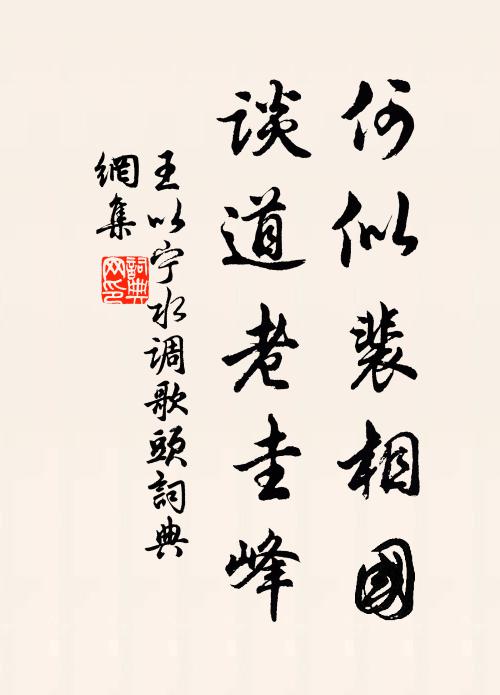 何似裴相國
谈道老圭峰
王以宁水调歌頭詞典
網集
詞典網印